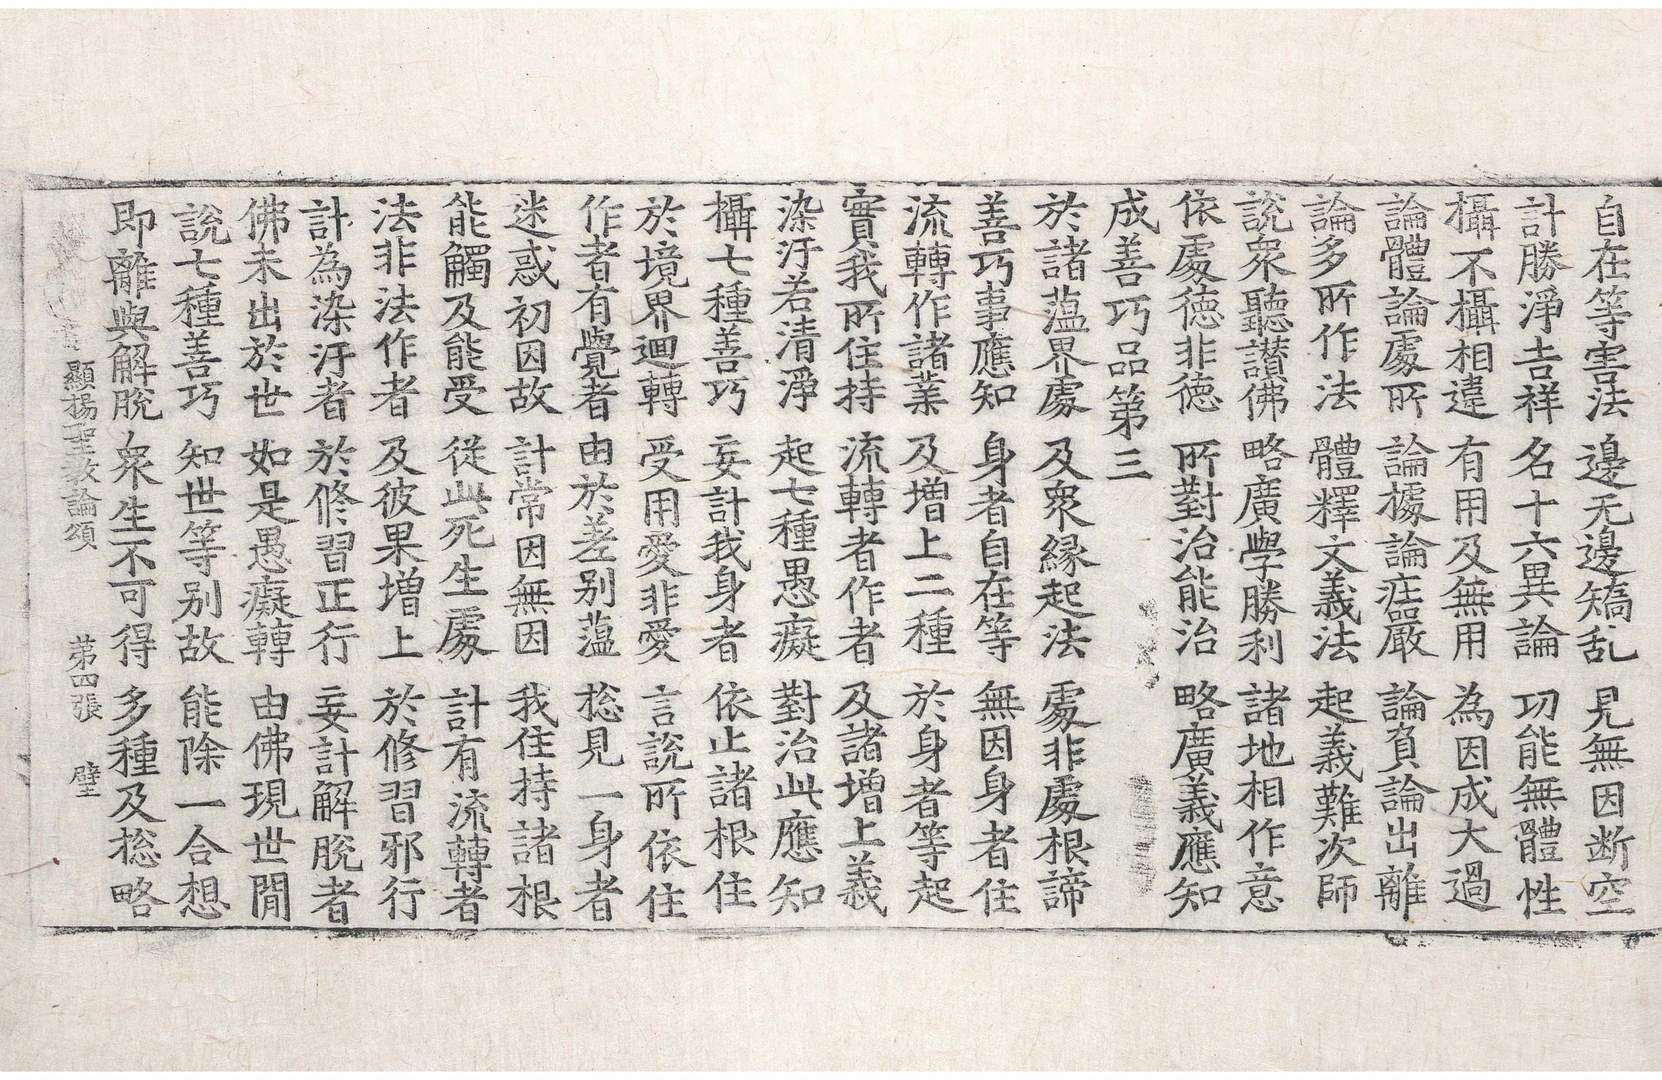 自在等害法 邊无邊矯乱 見無因断空
計勝淨吉祥 名十六異論 㓛能無體性
攝不攝相違 有用及無用 為因成大過
論體論處所 論據論莊嚴 論負論出離
論多所作法 體釋文義法 起義難次師
說衆聽讃佛 略廣學勝利 諸地相作意
依處德非德 所對治能治 略廣義應知
成善巧品第三
於諸薀界處 及衆縁起法 處非處根諦
善巧事應知 身者自在等 無因身者住
流轉作諸業 及增上二種 於身者等起
實我所住持 流轉者作者 及諸增上義
染汙若清淨 起七種愚癡 對治此應知
攝七種善巧 妄計我身者 依止諸根住
於境界迴轉 受用愛非愛 言說所依住
作者有覺者 由於差别薀 捴見一身者
迷惑初因故 計常因無因 我住持諸根
能觸及能受 從此死生處 計有流轉者
法非法作者 及彼果增上 於修習邪行
計為染汙者 於修習正行 妄計解脫者
佛未出於世 如是愚癡轉 由佛現世閒
說七種善巧 知世等别故 能除一合想
即離與解脫 衆生不可得 多種及捴略
顯揚聖教論頌 第四張 壁